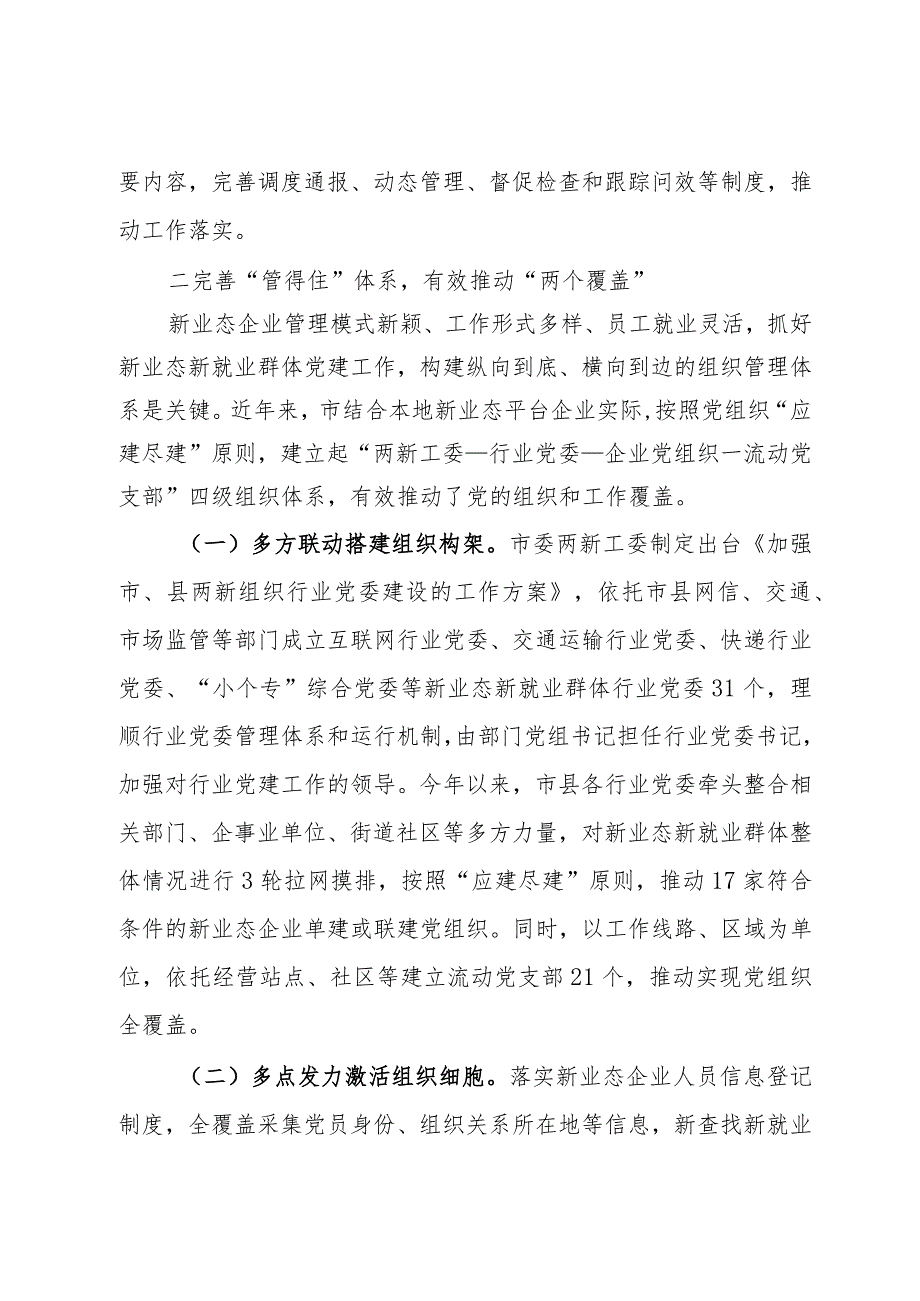 要内容，完善调度通报、动态管理、督促检查和跟踪问效等制度，推
动工作落实。
二完善“管得住”体系，有效推动“两个覆盖”
新业态企业管理模式新颖、工作形式多样、员工就业灵活，抓好
新业态新就业群体党建工作，构建纵向到底、横向到边的组织管理体
系是关键。近年来，市结合本地新业态平台企业实际,按照党组织“应
建尽建”原则，建立起“两新工委—行业党委—企业党组织一流动党
支部”四级组织体系，有效推动了党的组织和工作覆盖。
（一）多方联动搭建组织构架。市委两新工委制定出台《加强
市、县两新组织行业党委建设的工作方案》，依托市县网信、交通、
市场监管等部门成立互联网行业党委、交通运输行业党委、快递行业
党委、“小个专”综合党委等新业态新就业群体行业党委 31 个，理
顺行业党委管理体系和运行机制,由部门党组书记担任行业党委书记，
加强对行业党建工作的领导。今年以来，市县各行业党委牵头整合相
关部门、企事业单位、街道社区等多方力量，对新业态新就业群体整
体情况进行 3 轮拉网摸排，按照“应建尽建”原则，推动 17 家符合
条件的新业态企业单建或联建党组织。同时，以工作线路、区域为单
位，依托经营站点、社区等建立流动党支部 21 个，推动实现党组织
全覆盖。
（二）多点发力激活组织细胞。落实新业态企业人员信息登记
制度，全覆盖采集党员身份、组织关系所在地等信息，新查找新就业